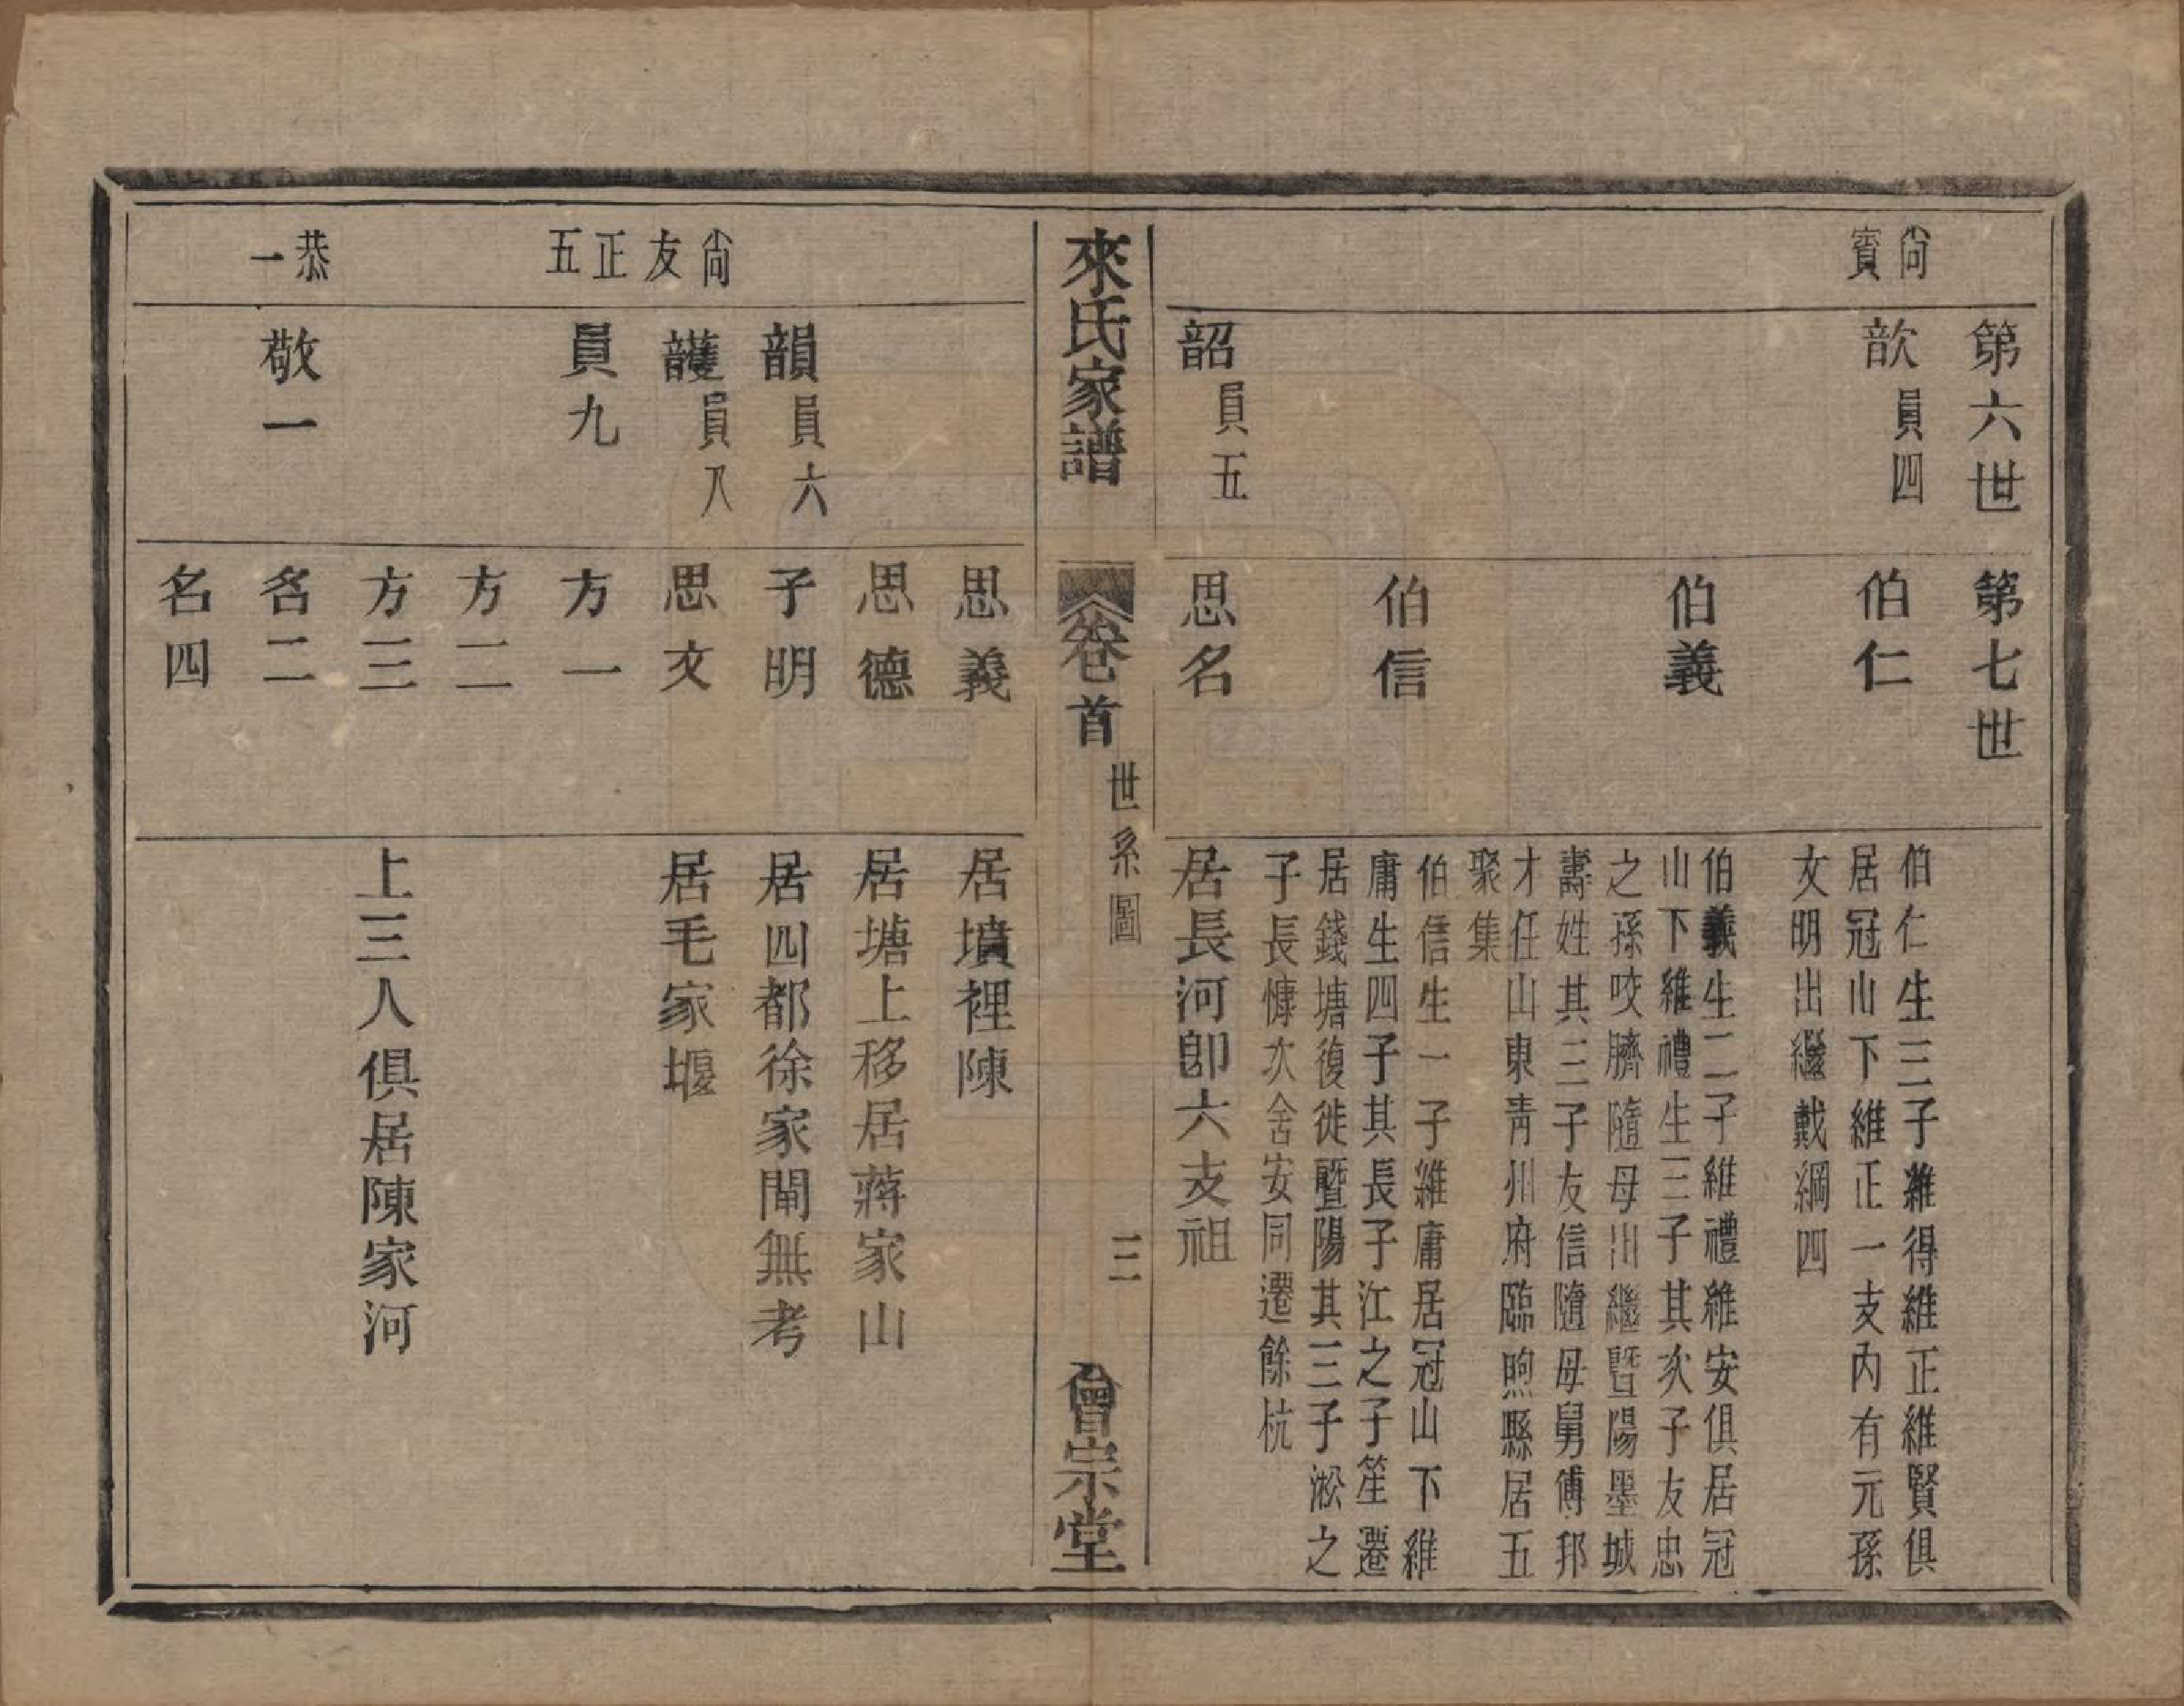 第六世
第七世
尙賓
歆 員四
伯仁
伯仁生三子維得維正維賢俱
居冠山下維正一支內有元孫
文明出繼戴綱四
伯義
伯義生二子維禮維安俱居冠
山下維禮生三子其次子友忠
之孫咬臍隨母出繼暨陽墨城
壽姓其三子友信隨母舅傅邦
才任山東靑州府臨煦縣居五
聚集
伯信
伯信生一子維庸居冠山下維
庸生四子其長子江之子笙遷
居錢塘復徙暨陽其三子淞之
子長慷次舍安同遷餘杭
韶 員五
思名
居長河卽六支祖
來氏家譜
卷首
世系圖
三
會宗堂
思義
居墳裡陳
思德
居塘上移居蔣家山
尙友
韻 員六
子明
居四都徐家閘無考
頀 員八
思文
居毛家堰
正五
員九
方一
方二
方三
上三人俱居陳家河
恭一
敬一
名二
名四